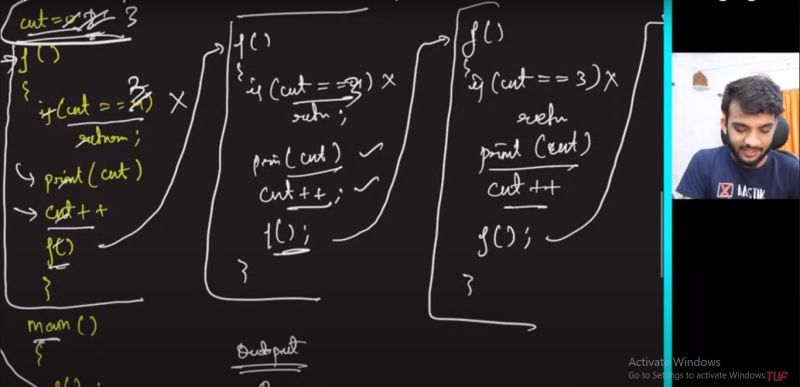 cnt = 3
f()
{
if(cnt == 3) X
return;
print(cnt)
cnt++
f()
}
main()
{
f();
f()
{
if(cnt == 3) X
retn;
print(cnt)
cnt++;
f();
}
Output
f()
{
if(cnt == 3) X
retn
print(cnt)
cnt++
f();
}
AASTIK
Activate Windows
Go to Settings to activate Windows.
TUF